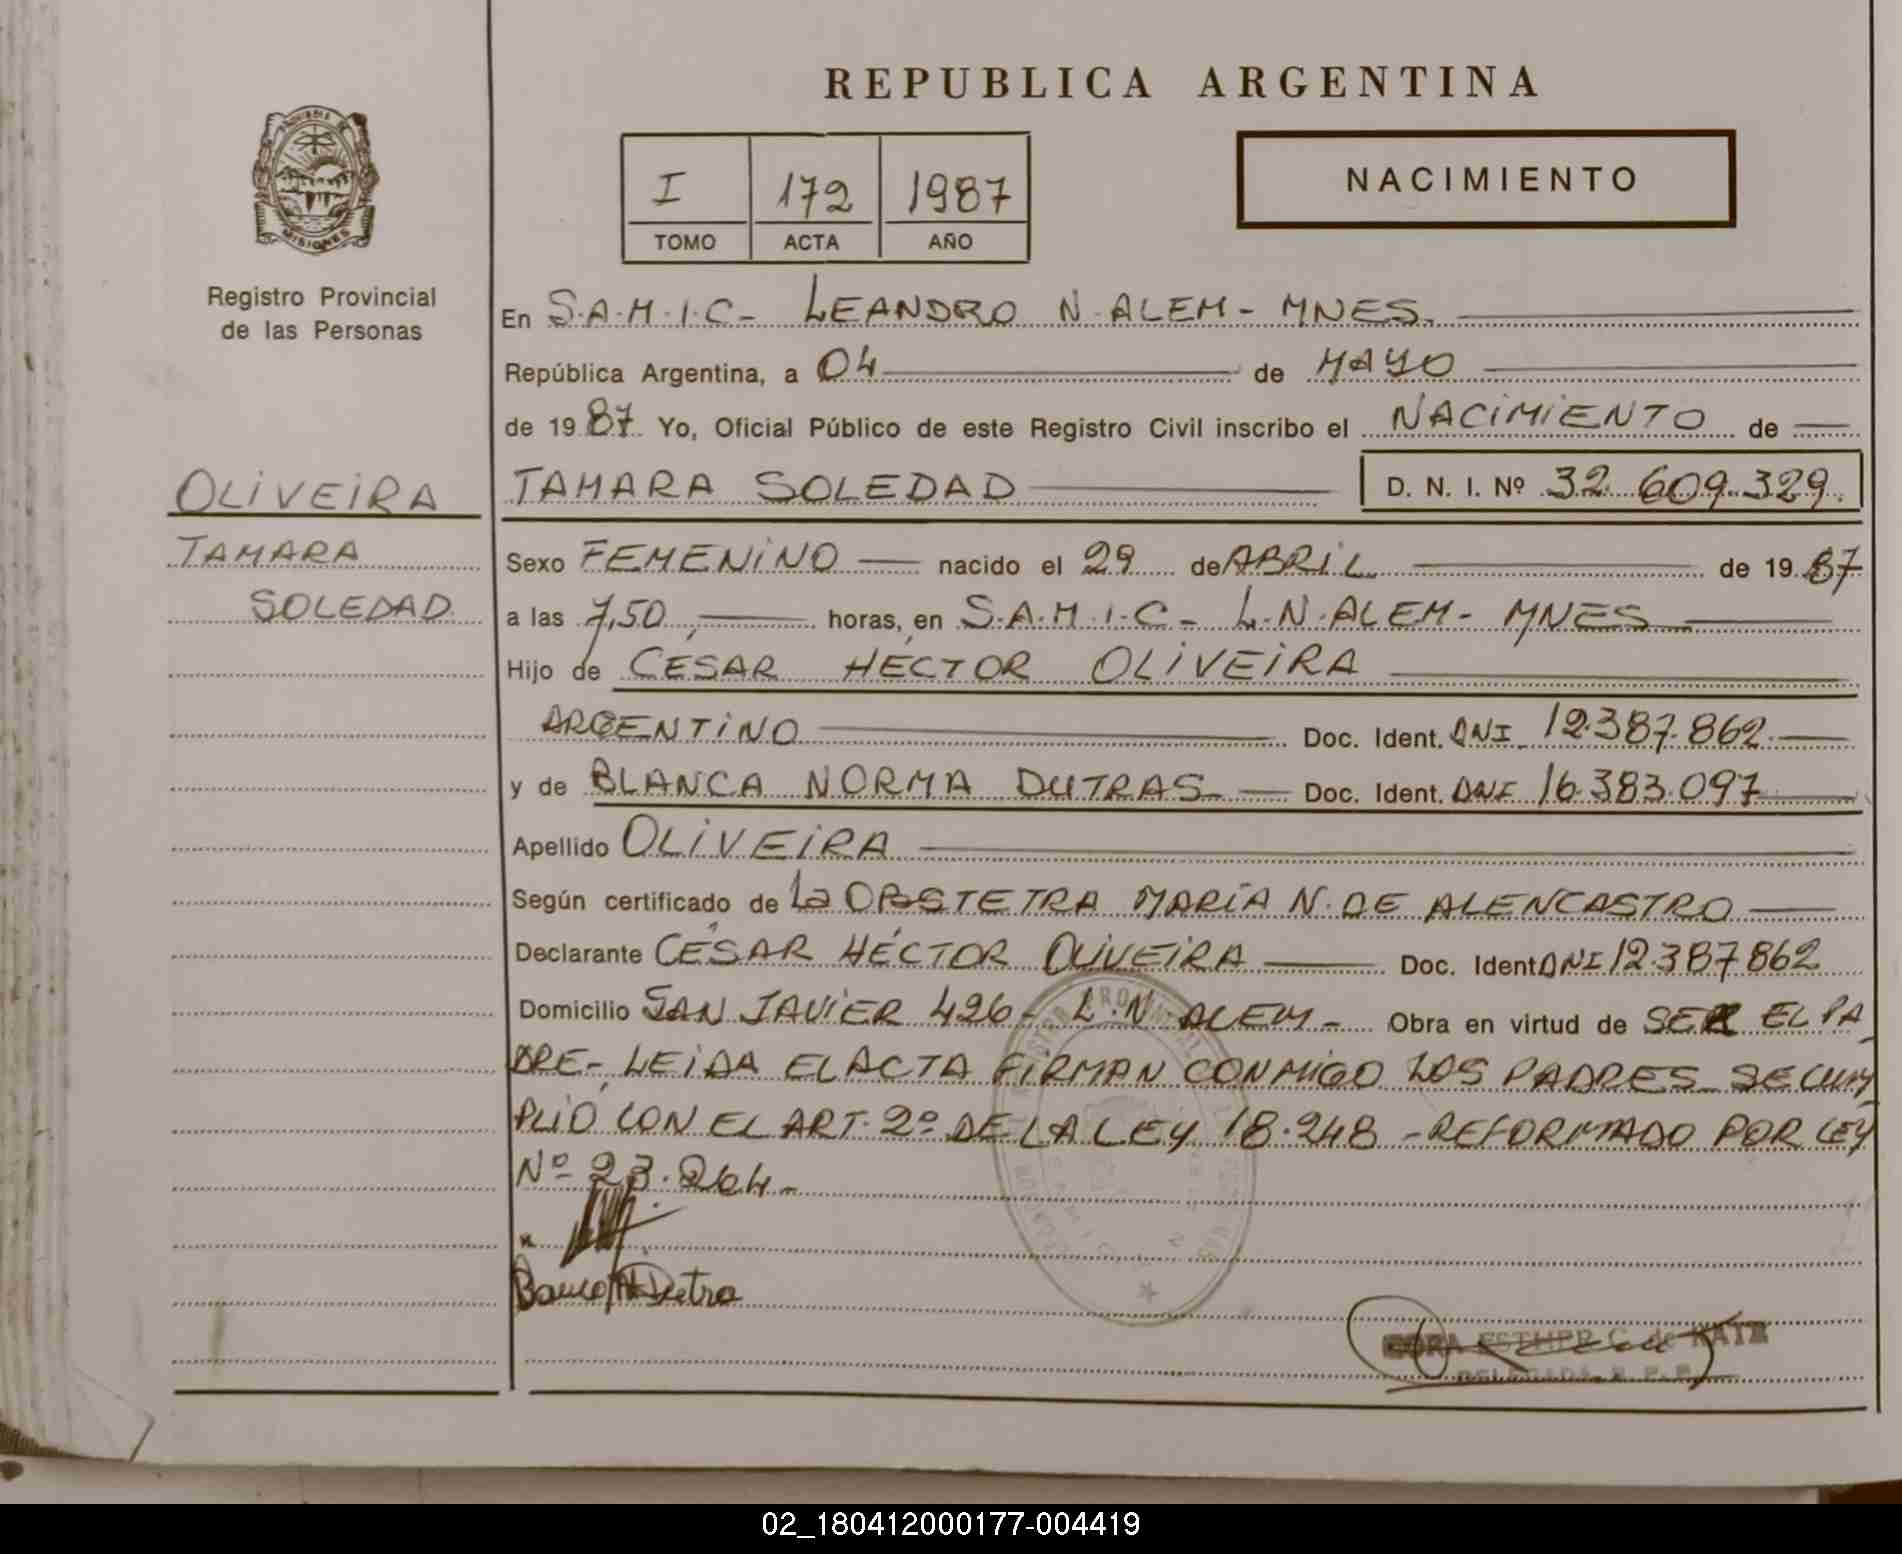 REPUBLICA ARGENTINA
MISIONES
Registro Provincial
de las Personas
I 172 1987
TOMO ACTA AÑO
NACIMIENTO
En S.A.M.I.C- LEANDRO N. ALEM - MNES.
República Argentina, a 04 de MAYO
de 1987 Yo, Oficial Público de este Registro Civil inscribo el NACIMIENTO de
OLIVEIRA
TAMARA SOLEDAD D. N. I. Nº 32.609.329.
TAMARA
SOLEDAD
Sexo FEMENINO nacido el 29 de ABRIL de 1987
a las 7,50, horas, en S.A.M.I.C- L.N. ALEM - MNES
Hijo de CÉSAR HÉCTOR OLIVEIRA
ARGENTINO Doc. Ident. DNI 12.387.862
y de BLANCA NORMA DUTRAS Doc. Ident. DNI 16.383.097
Apellido OLIVEIRA
Según certificado de La OBSTETRA MARÍA N. DE ALENCASTRO
Declarante CÉSAR HÉCTOR OLIVEIRA Doc. Ident DNI 12.387862
Domicilio SAN JAVIER 426 - L.N. ALEM - Obra en virtud de SER EL PA
DRE - LEIDA EL ACTA FIRMAN CONMIGO LOS PADRES SE CUM
PLIÓ CON EL ART. 2º DE LA LEY 18.248 - REFORMADO POR LEY
Nº 23.264 -
Dutra
ESTHER C. de KATZ
DELEGADA R. P. P.
02_180412000177-004419